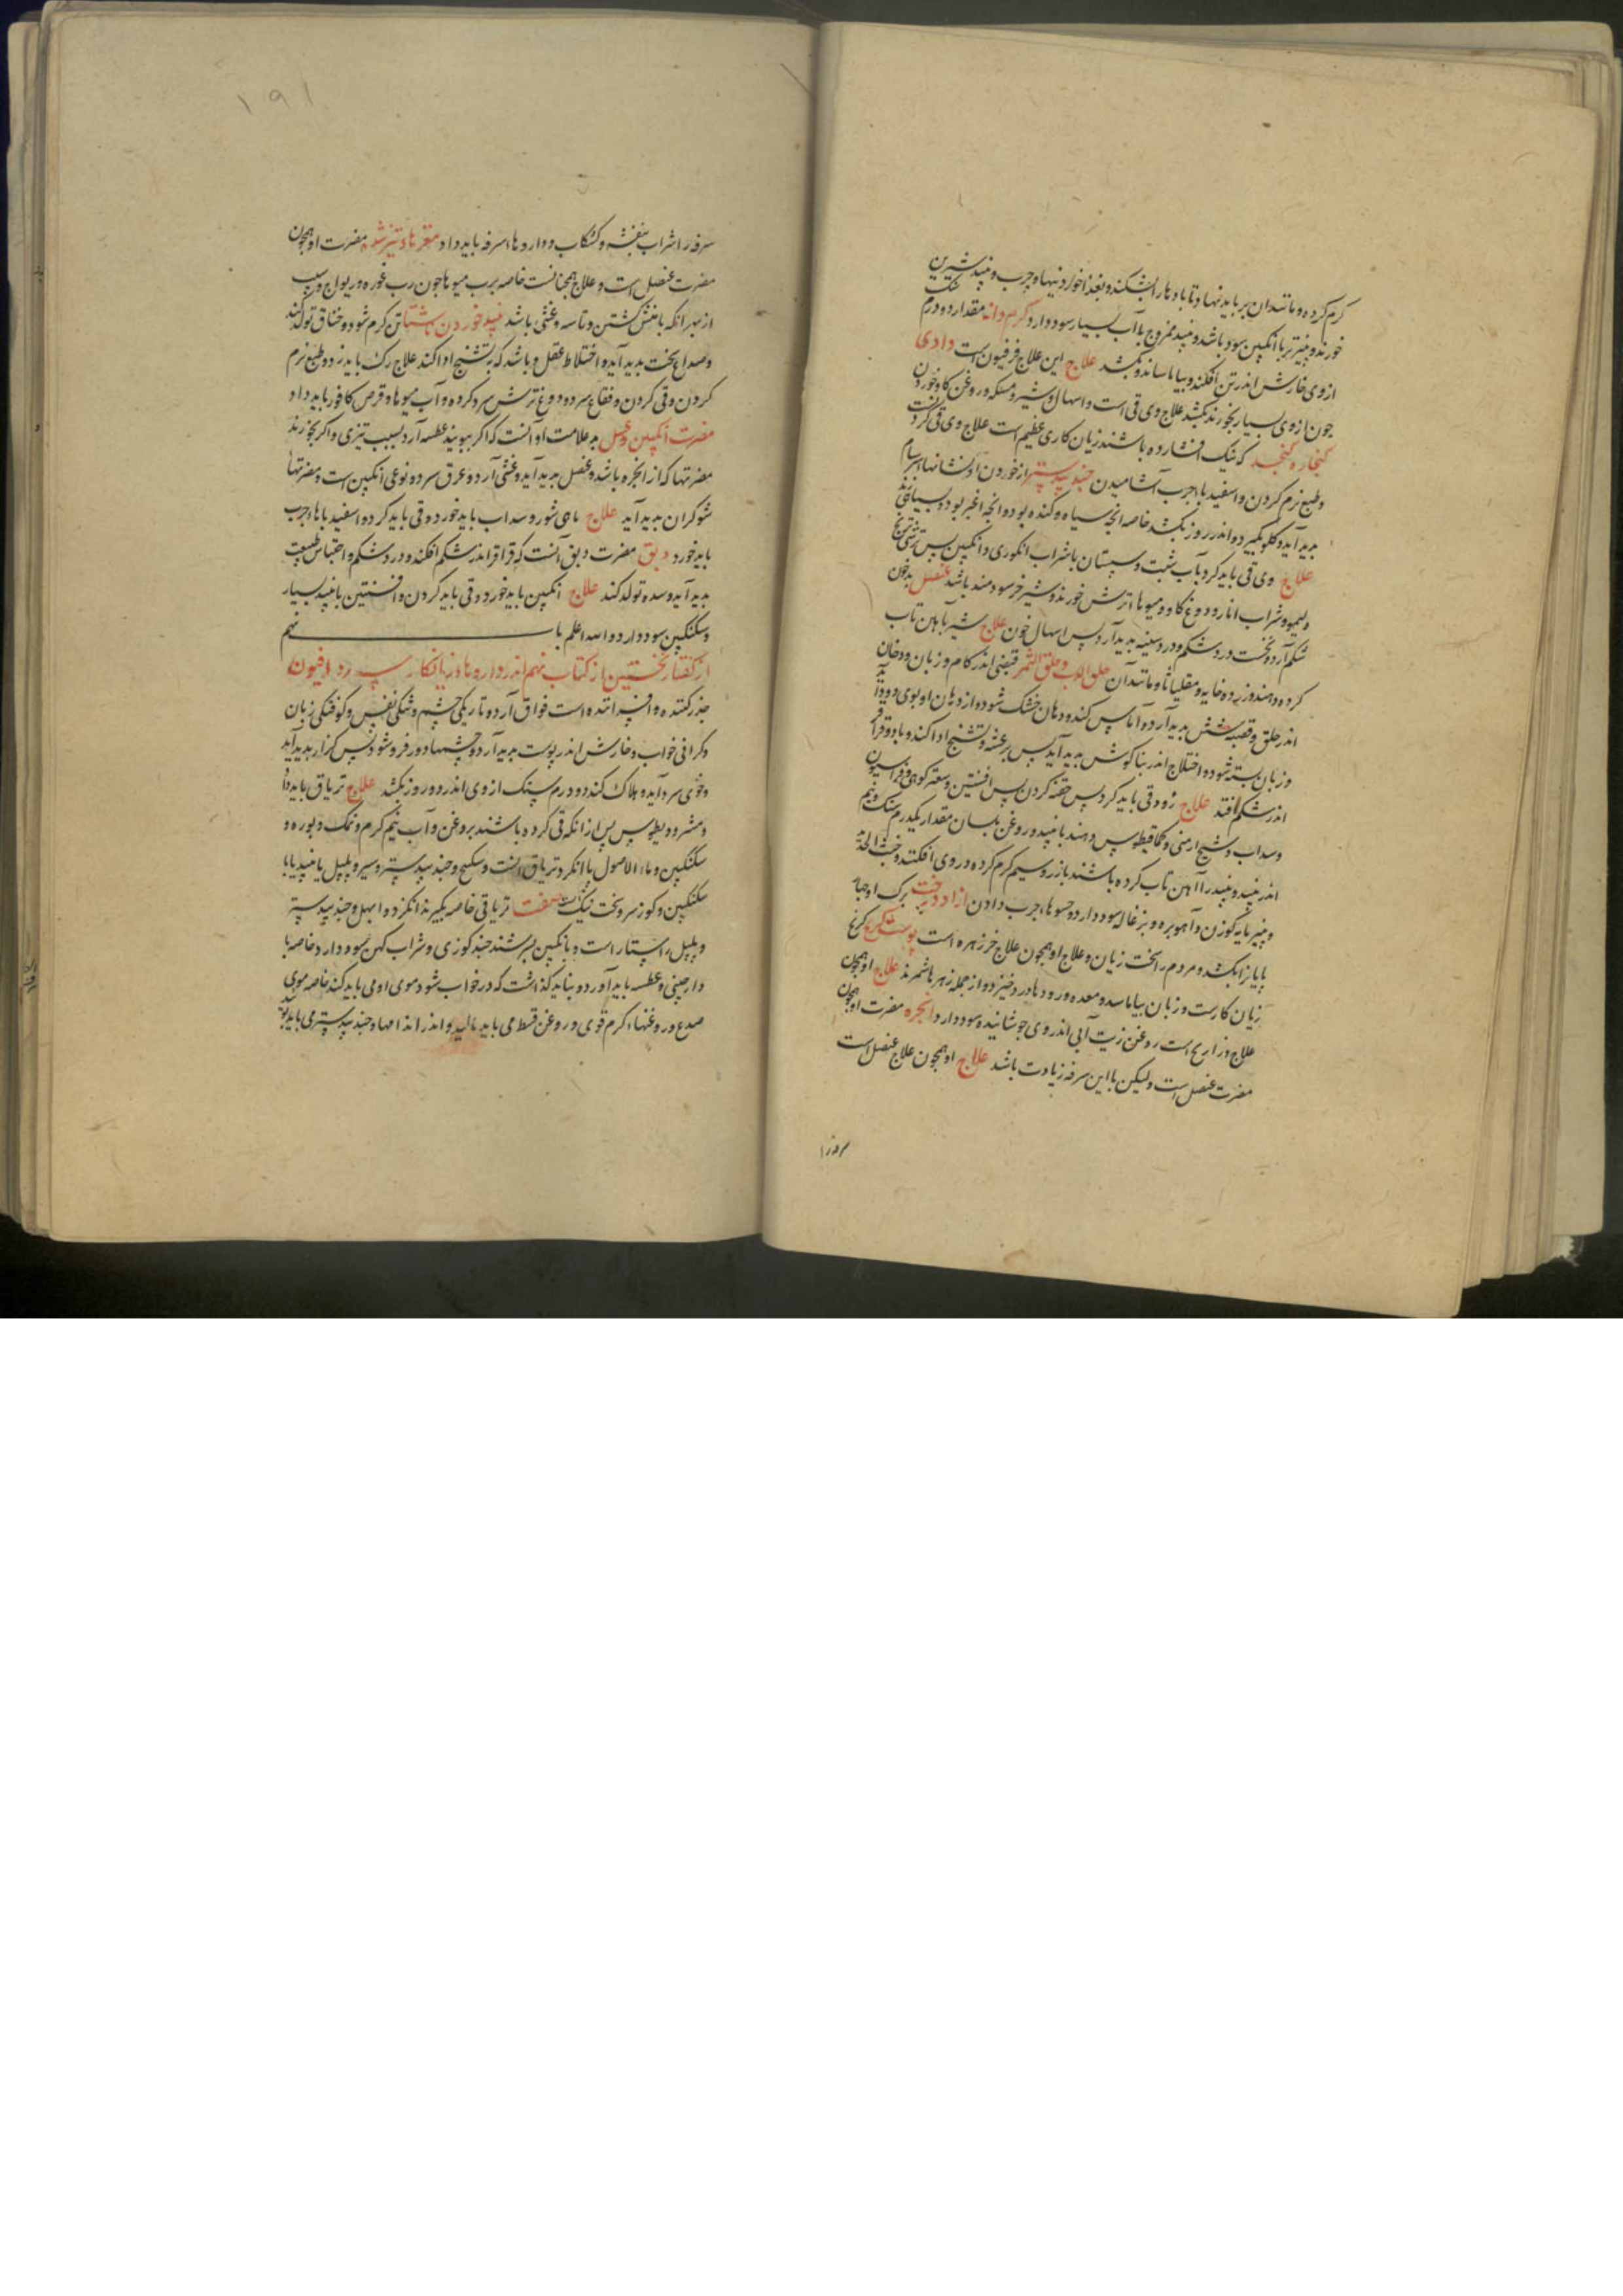 کرم کرده و مانند ان بر باید نهاد تا بادها را بشکند و بغذا خوردنیهاء چرب و نبید شیرین
خورند و پنیر تر با انکبین سود باشد و نبید ممزوج باآب بسیار سود دارد کرم دانه مقدار دو درم
ازوی خارش اندر تن افکند و بیاماساند و بکشد علاج این علاج فرفیون است دادی
جون ازوی بسیار بخورند بکشد علاج وی قی است و اسهال و شیر و مسکه و روغن کاو خوردن
کنجاره کنجد که نیک افشارده باشند زیان کاری عظیم است علاج وی قی کردنست
و طبع نرم کردن و اسفید باء چرب آشامیدن جندبیدستر از خوردن او نشانهاء سرسام
بدید آید و کلو بکیرد و اندر روز بکشد خاصه انچه سیاه و کنده بود و انچه اغبر بود و بسیاهی زند
علاج وی قی باید کرد بآب شبت و سپستان باشراب انکوری و انکبین پس ترشی ترنج
و لیمو و شراب انار و دوغ کاو و میوهاء ترش خورند و شیر خر سودمند باشد عنصل
شکم آرد و نخست درد شکم و درد سینه بدید آرد پس اسهال خون علاج شیر بآهن تاب
کرده دهند و زرده خایه و مقلیاثا و مانند آن
اندر حلق و قصبه شش بدید آرد و آماس کند و دهان خشک شود و از دهان او بوی
و زبان بسته شود و اختلاج اندر بناکوش بدید آید پس برعشه و تشنج ادا کند و باد و قراقر
اندر شکم افتد علاج زود قی باید کرد پس حقنه کردن پس افسنتین و سعتر کوهی و فراسیون
و سداب و شیح ارمنی و کمافیطوس دهند با نبید و روغن بلسان مقدار یکدرم سنک و نیم
اندر نبید و نبید را آهن تاب کرده باشند یا زر و سیم کرم کرده در وی افکنند و خبث الحدید
و پنیر مایه کوزن و آهو بره و بزغاله سود دارد و حسوهاء چرب دادن ازاد درخت برک او چهار
پایان را بکشد و مردم را سخت زیان و علاج او همچون علاج خرزهره است پوست کرنج
زیان کارست و زبان بیاماسد و معده و رودها درد خیزد و از جمله زهرها شمرند علاج او همچون
علاج ذراریح است روغن زیت آبی اندر وی جوشانیده سود دارد انجره مضرت او همچون
مضرت عنصل است ولیکن با این سرفه زیادت باشد علاج او همچون علاج عنصل است
سرفه را
۱۹۱
سرفه را شراب بنفشه و کشکاب و داروهاء سرفه باید داد مغزهاء تیز شده مضرت او همچون
مضرت عنصل است و علاج همچنانست خاصه برب میوها جون رب غوره و ریواج و سیب
از بهر انکه با منش کشتن و تاسه و غشی باشد نبید خوردن ناشتا تن کرم شود و خناق تولد کند
و صداع سخت بدید آید و اختلاط عقل و باشد که بتشنج ادا کند علاج رک باید زد و طبع نرم
کردن و قی کردن و فقاع سرد و دوغ ترش سرد کرده و آب میوها و قرص کافور باید داد
مضرت انکبین و عسل بد علامت او آنست که اکر ببویند عطسه آرد بسبب تیزی و اکر بخورند
مضرتها که از انجره باشد و عنصل بدید آید و غشی آرد و عرق سرد و نوعی انکبین است و مضرتهاء
شوکران بدید آید علاج ماهی شور و سداب باید خورد و قی باید کرد و اسفید باهاء چرب
باید خورد دبق مضرت دبق آنست که قراقر اندر شکم افکند و درد شکم و احتباس طبیعت
بدید آید و سده تولد کند علاج انکبین باید خورد و قی باید کردن و افسنتین با نبید بسیار
و سکنکبین سود دارد والله اعلم باب نهم
از کفتار نخستین از کتاب نهم اندر داروها زیانکار سرد افیون
خدر کننده و افسراننده است فواق آرد و تاریکی چشم و تنکی نفس و کوفتکی زبان
و کرانی خواب و خارش اندر پوست بدید آرد و چشمها دور فروشود پس کزاز بدید آید
و خوی سرد آید و هلاک کند دو درم سنک ازوی اندر دو روز بکشد علاج تریاق باید داد
و مثرودیطوس پس از انکه قی کرده باشند بروغن و آب نیم کرم و نمک و بوره و
سکنکبین و ماء الاصول با انکزد تریاق آنست و سکبینج و جندبیدستر و سیر و پلپل یا نبید یا با
سکنکبین و کوز سر و سخت نیک تریاقی خاصه بکیرند انکزد و ابهل و جندبیدستر
و پلپل راستا راست و بانکبین بسرشند چند کوزی و شراب کهن سود دارد خاصه با
دارچینی و عطسه باید آورد و نباید کذاشت که درخواب شود و موی او می باید کند خاصه موی
صدغ و روغنهاء کرم قوی و روغن قسط می باید مالید و اندر اندامها و جندبیدستر می باید